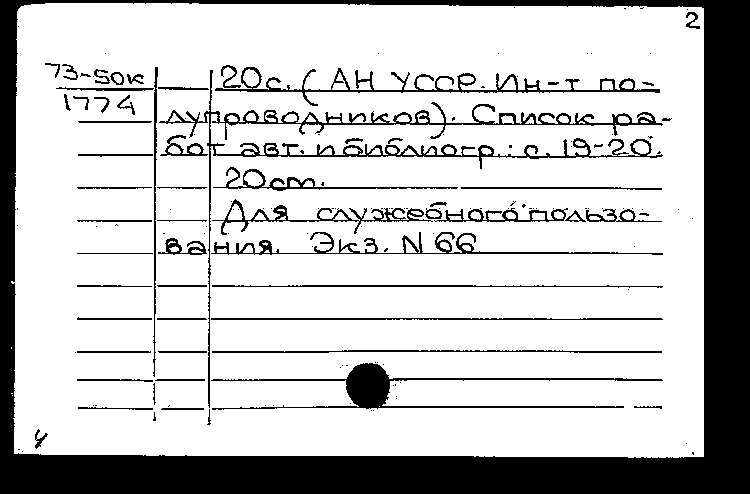 2
73-50к
1774
20с. (АН УССР. Ин-т по-
лупроводников). Список ра-
бот авт. и библиогр.: с. 19-20.
20см.
Для служебного пользо-
вания. Экз. N 66